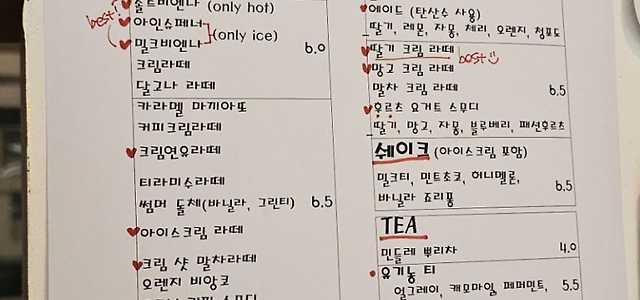 best!
솔트비엔나 (only hot)
아인슈페너
(only ice)
밀크비엔나
6.0
크림라떼
달고나 라떼
카라멜 마끼아또
커피크림라떼
크림연유라떼
티라미수라떼
썸머 돌체(바닐라, 그린티) 6.5
아이스크림 라떼
크림 샷 말차라떼
오렌지 비앙코
에이드 (탄산수 사용)
딸기, 레몬, 자몽, 체리, 오렌지, 청포도
딸기 크림 라떼
best
망고 크림 라떼
말차 크림 라떼 6.5
후르츠 요거트 스무디
딸기, 망고, 자몽, 블루베리, 패션후르츠
쉐이크 (아이스크림 포함)
밀크티, 민트초코, 허니멜론,
바닐라 죠리퐁
6.5
TEA
민들레 뿌리차 4.0
유기농 티
얼그레이, 캐모마일, 페퍼민트, 5.5